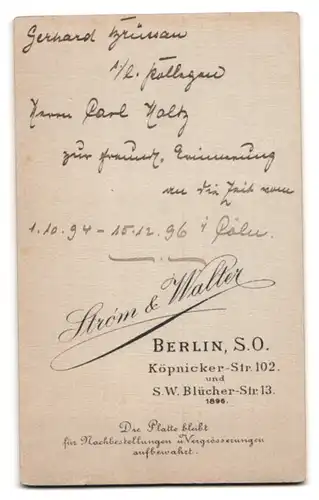 Gerhard Brüssau
s/l. Kollegen
Herrn Carl Holtz
zur freundl. Erinnerung
an die Zeit vom
1.10.94 - 15.12.96 i/ Cöln.
Ström & Walter
BERLIN, S.O.
Köpnicker-Str. 102.
und
S.W. Blücher-Str. 13.
1896.
Die Platte bleibt
für Nachbestellungen u. Vergrösserungen
aufbewahrt.